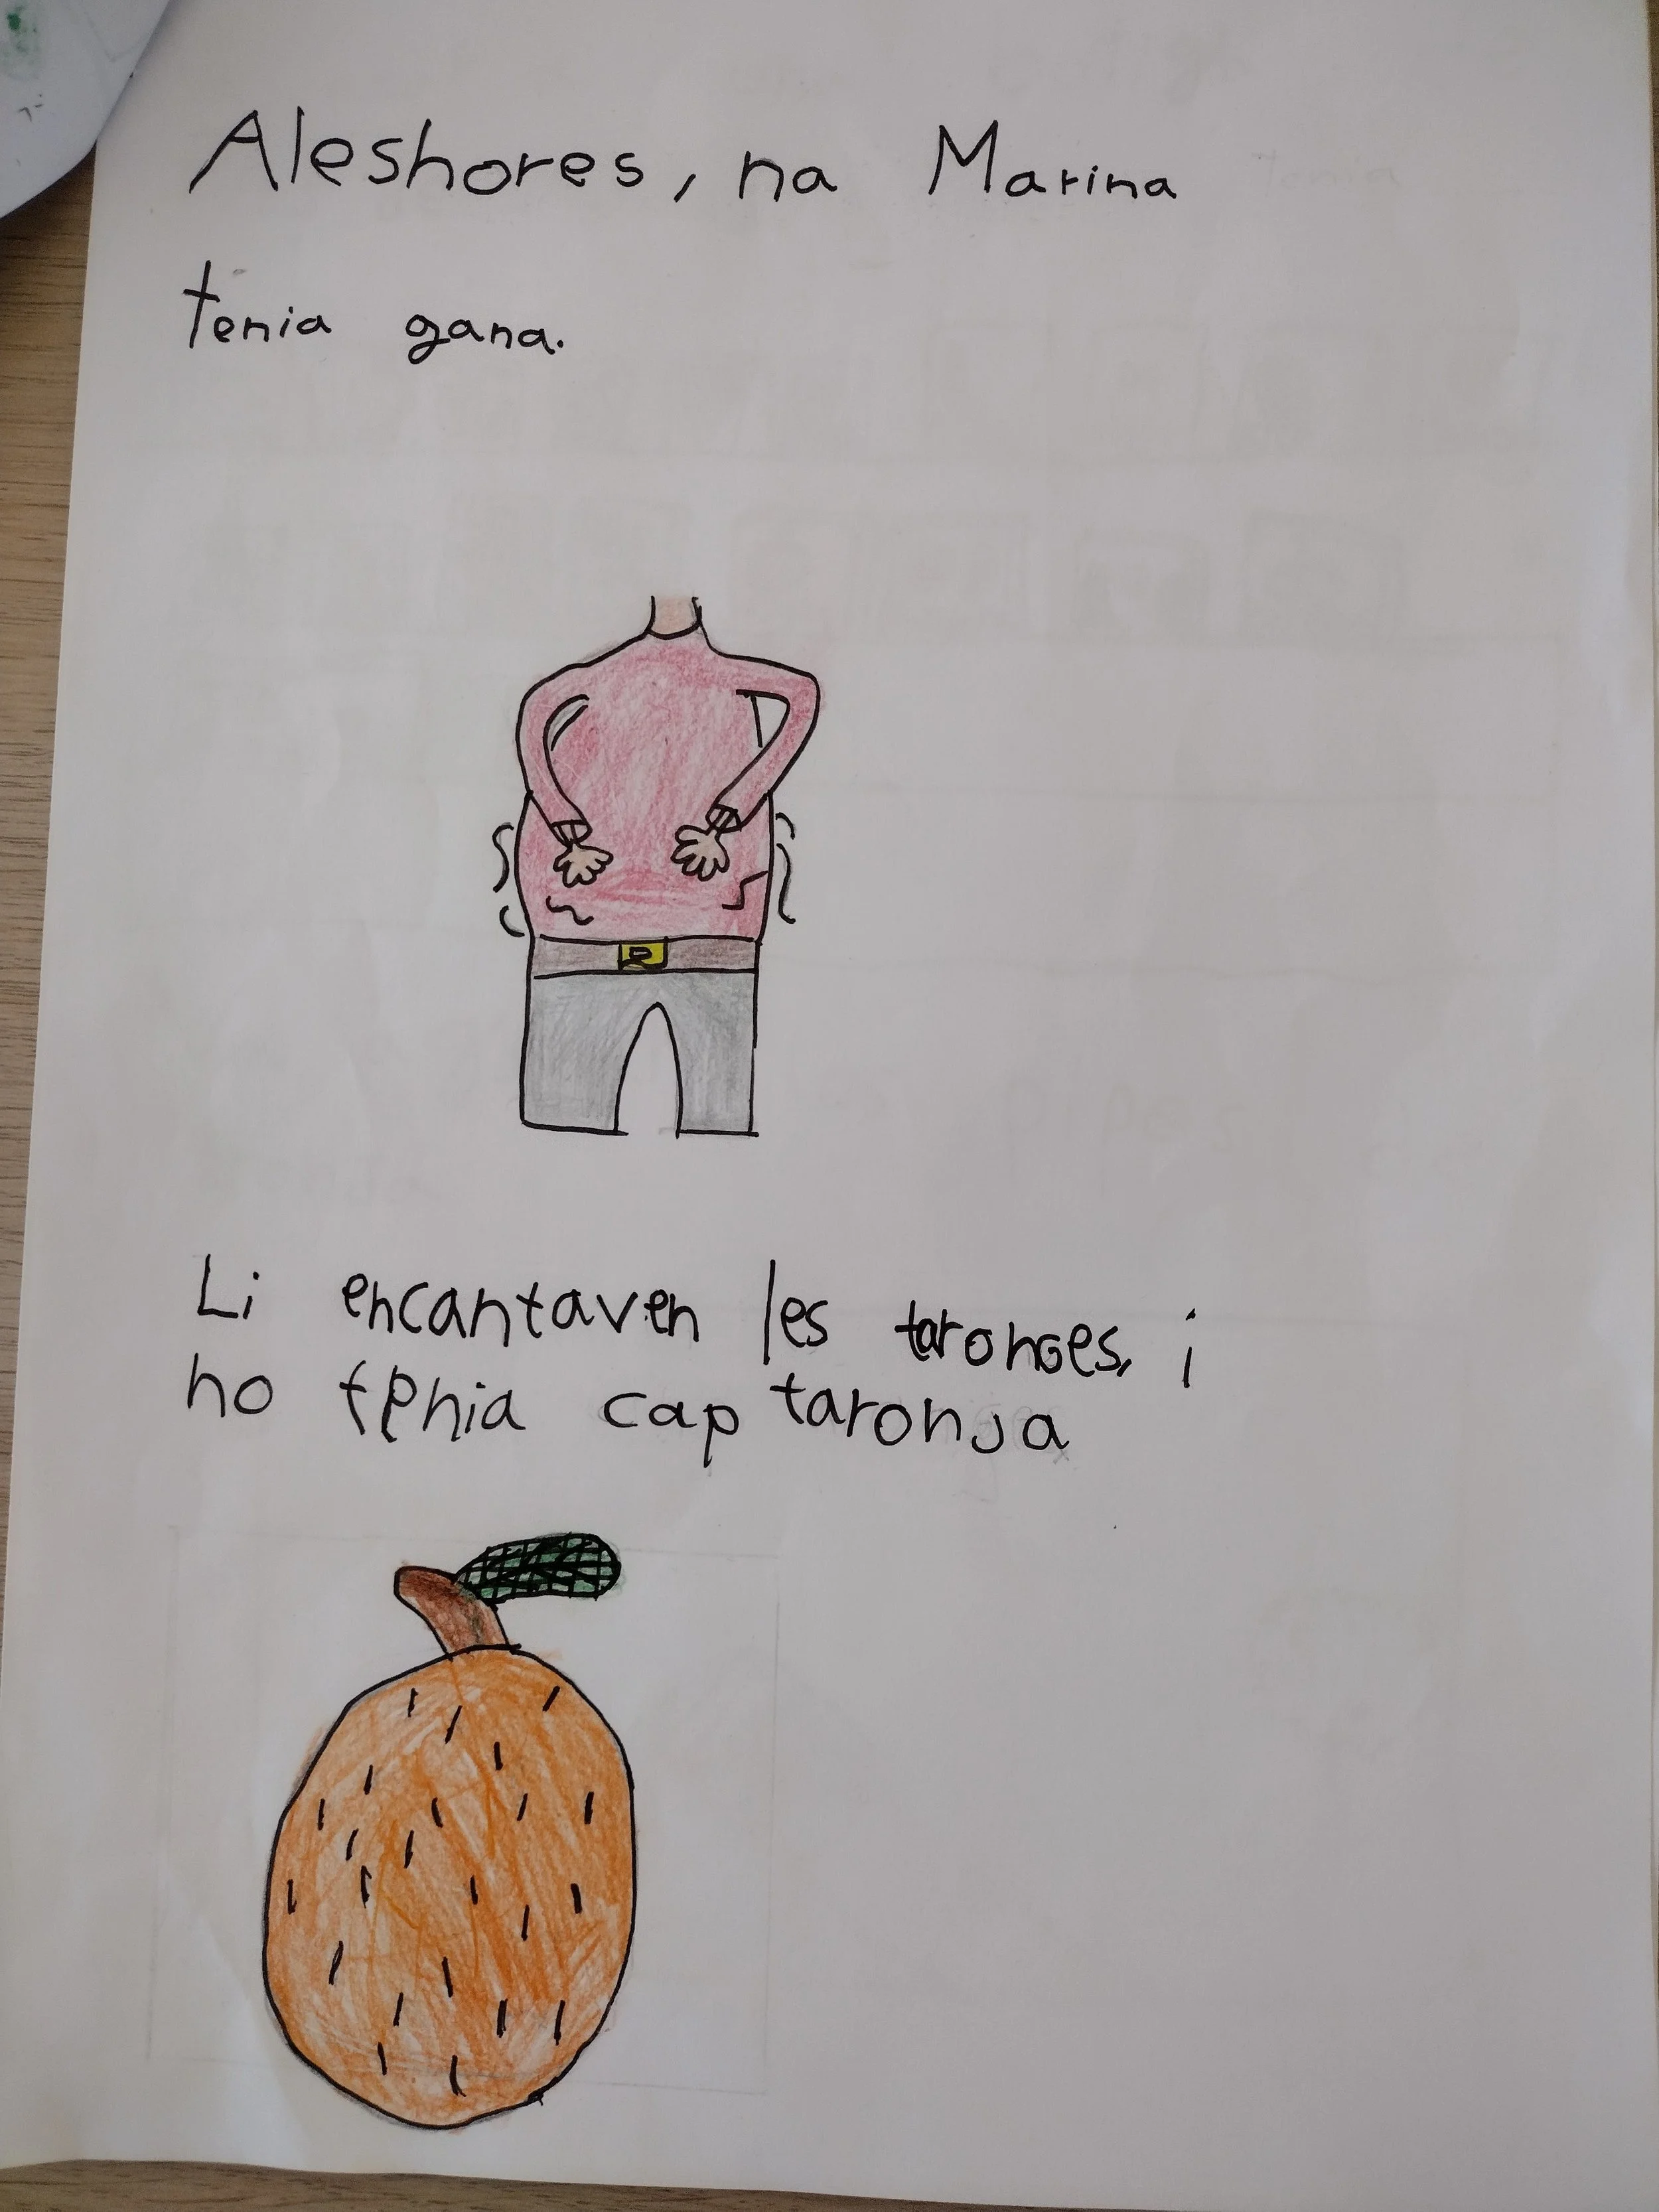 Aleshores, na Marina
tenia gana.
Li encantaven les taronges, i
no tenia cap taronja